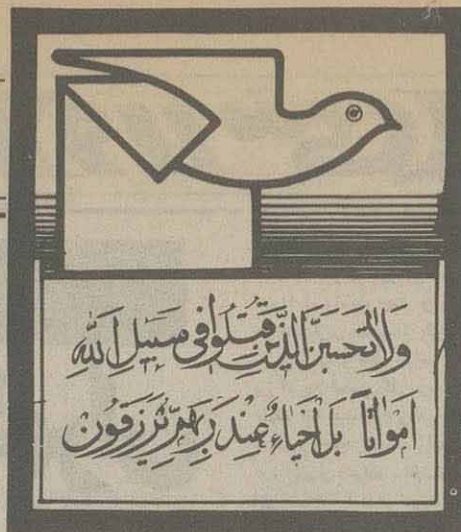 وَلاٰتَحسبَنَّ الَّذينَ قُتلُوا فى سَبيلِ اللهِ
اَمواتاً بَل اَحياءٌ عِندَ رَبِهِم يُرزَقُون